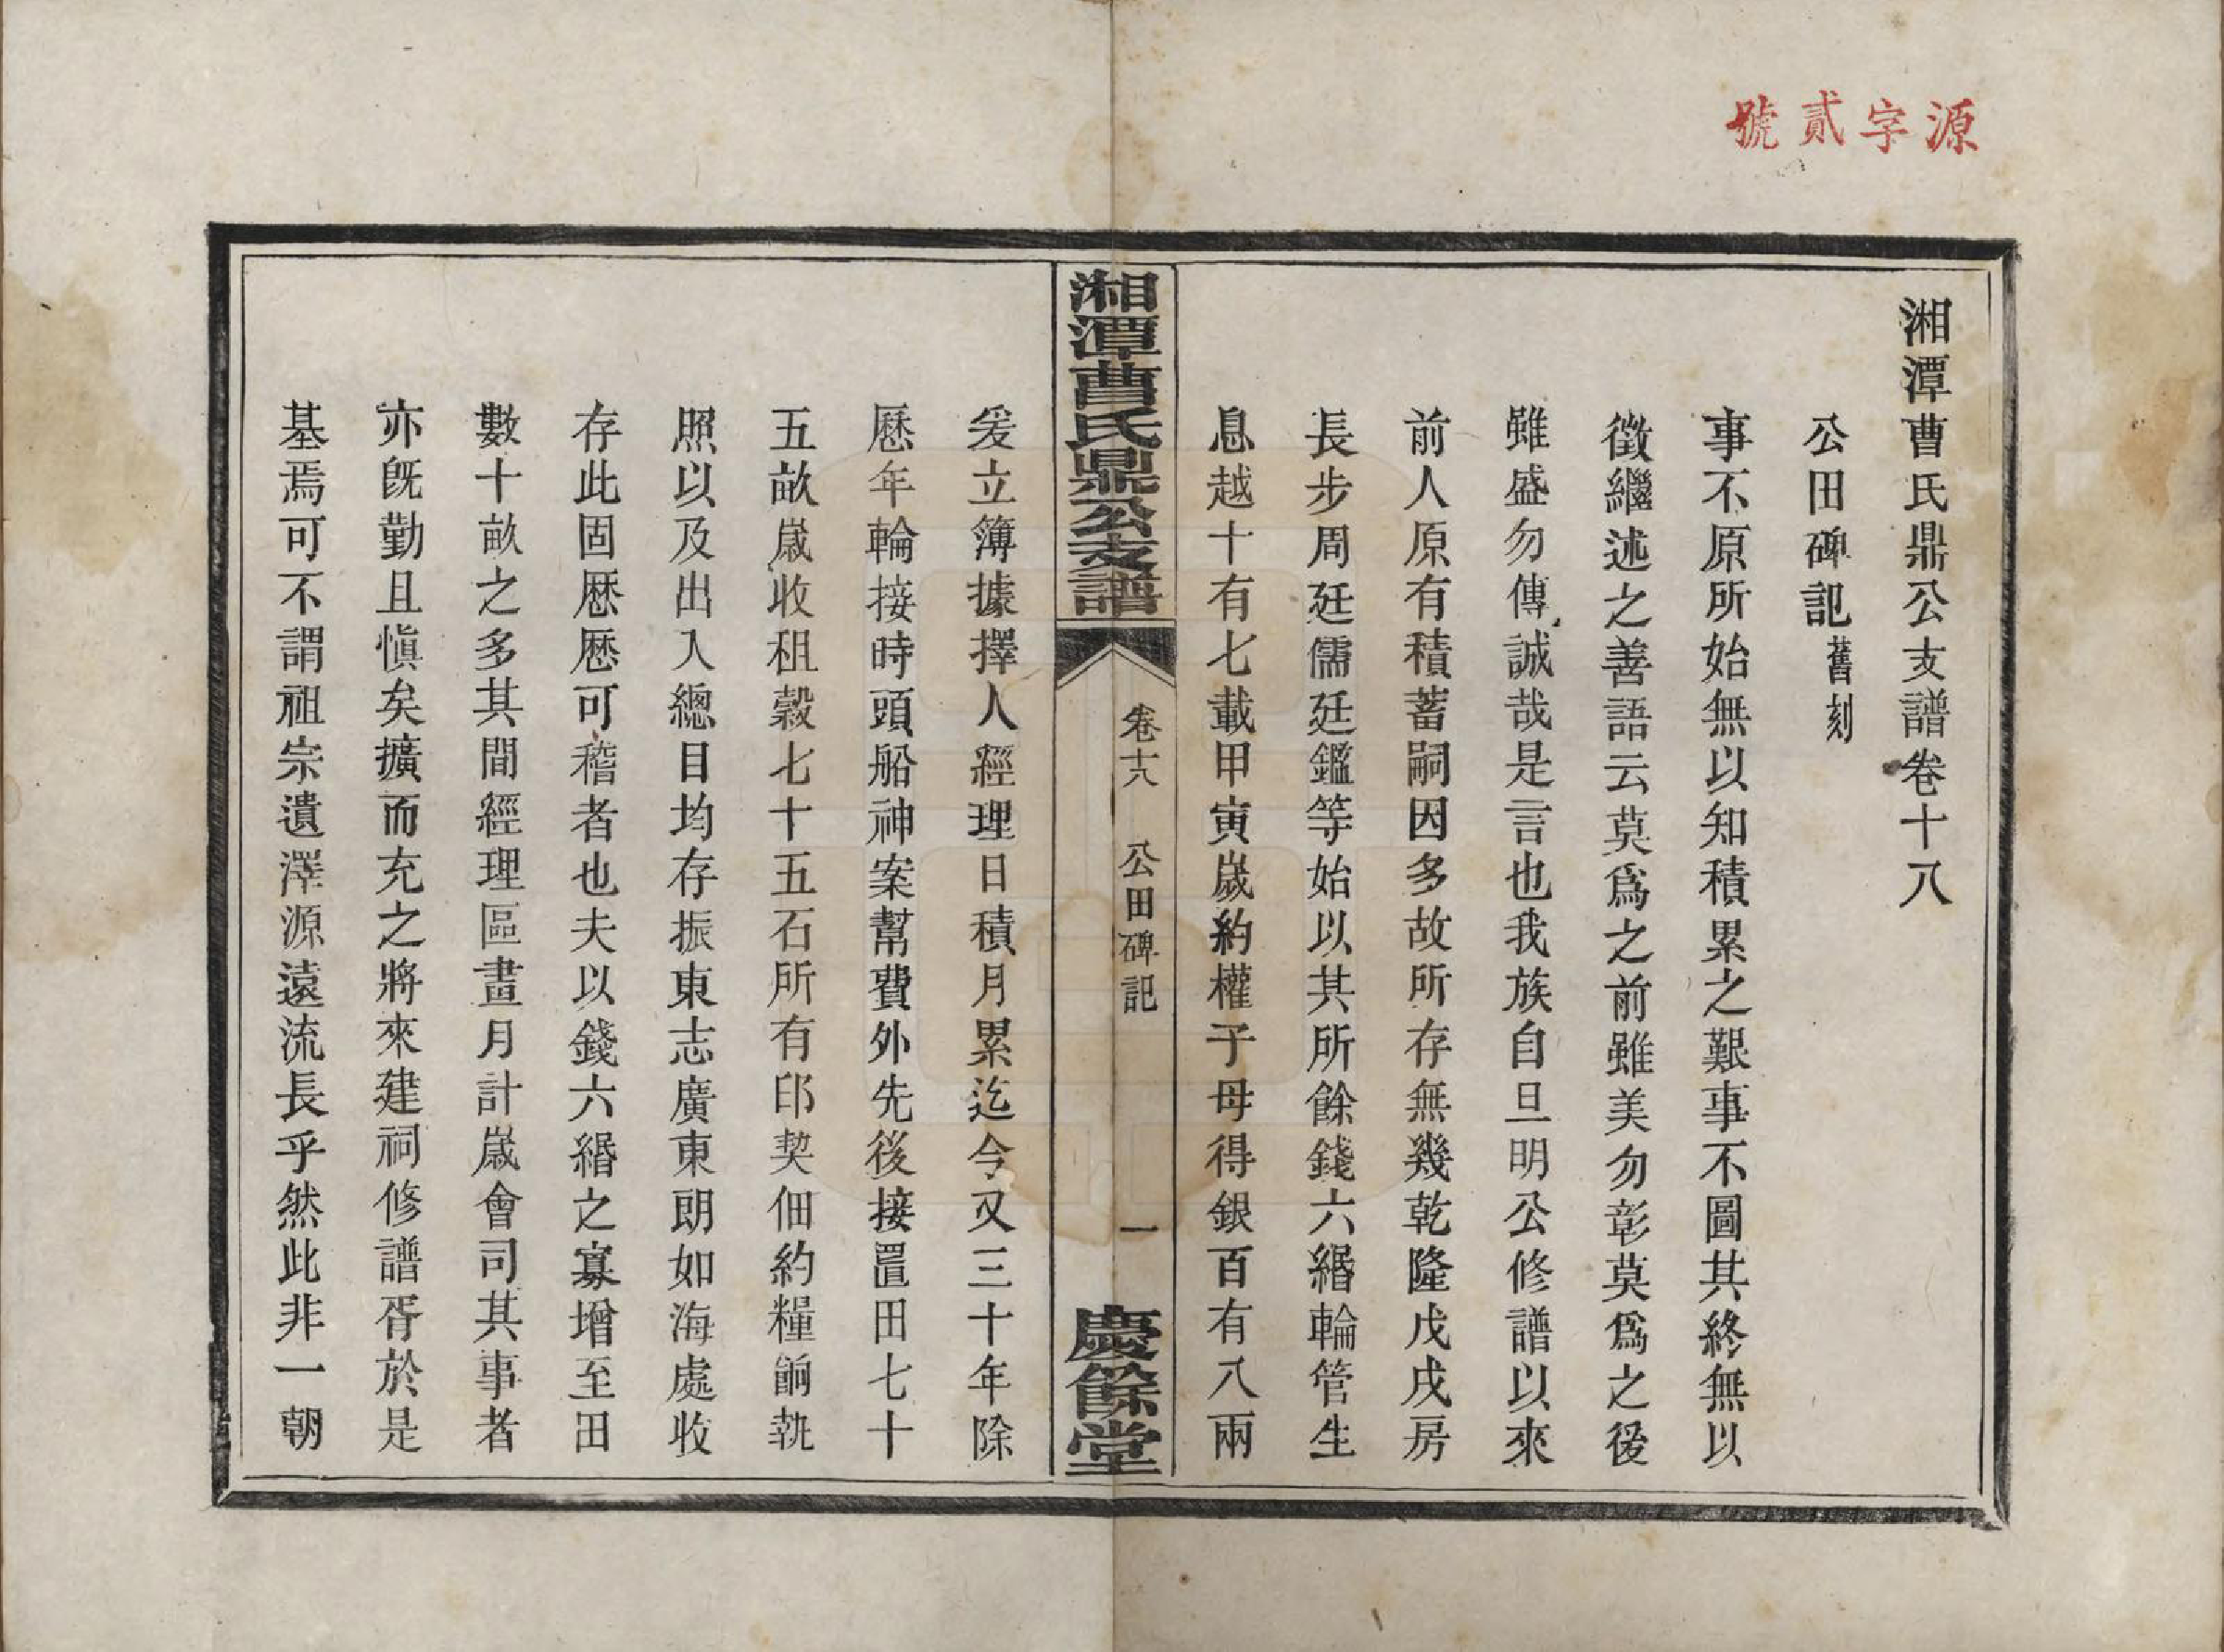 源字貳號
湘潭曹氏鼎公支譜卷十八
公田碑記舊刻
事不原所始無以知積累之艱事不圖其終無以
徵繼述之善語云莫爲之前雖美勿彰莫爲之後
雖盛勿傳誠哉是言也我族自旦明公修譜以來
前人原有積蓄嗣因多故所存無幾乾隆戊戌房
長步周廷儒廷鑑等始以其所餘錢六緡輪管生
息越十有七載甲寅歲約權子母得銀百有八兩
湘潭曹氏鼎公支譜
卷十八
公田碑記
一
慶餘堂
爰立簿據擇人經理日積月累迄今又三十年除
歷年輪接時頭船神案幫費外先後接置田七十
五畝歲收租穀七十五石所有印契佃約糧餉執
照以及出入總目均存振東志廣東朗如海處收
存此固歷歷可稽者也夫以錢六緡之寡增至田
數十畝之多其間經理區畫月計歲會司其事者
亦旣勤且愼矣擴而充之將來建祠修譜胥於是
基焉可不謂祖宗遺澤源遠流長乎然此非一朝